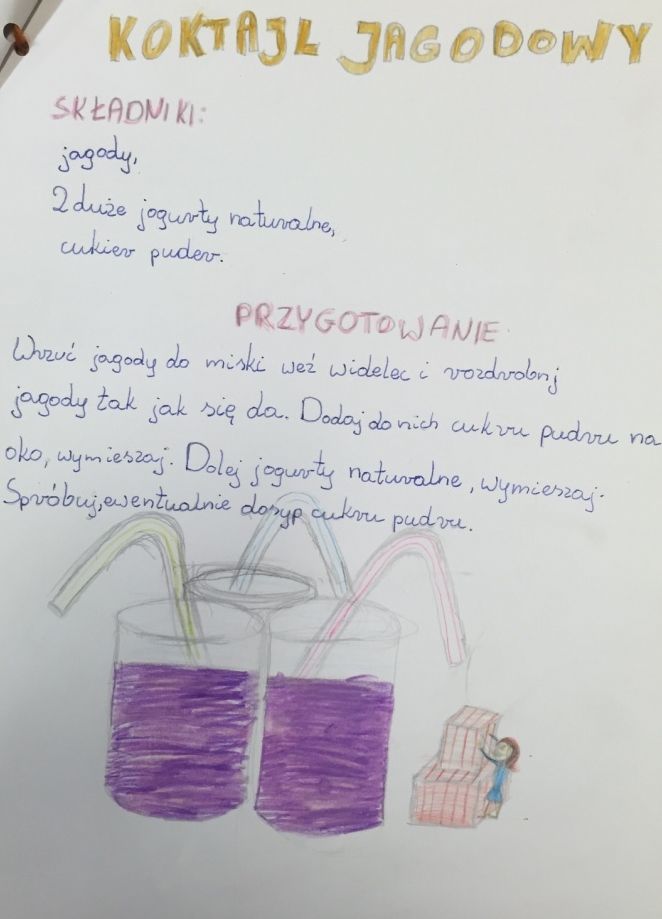 KOKTAJL JAGODOWY
SKŁADNIKI:
jagody,
2 duże jogurty naturalne,
cukier puder.
PRZYGOTOWANIE
Wrzuć jagody do miski weź widelec i rozdrobnij
jagody tak jak się da. Dodaj do nich cukru pudru na
oko, wymieszaj. Dolej jogurty naturalne, wymieszaj.
Spróbuj, ewentualnie dosyp cukru pudru.